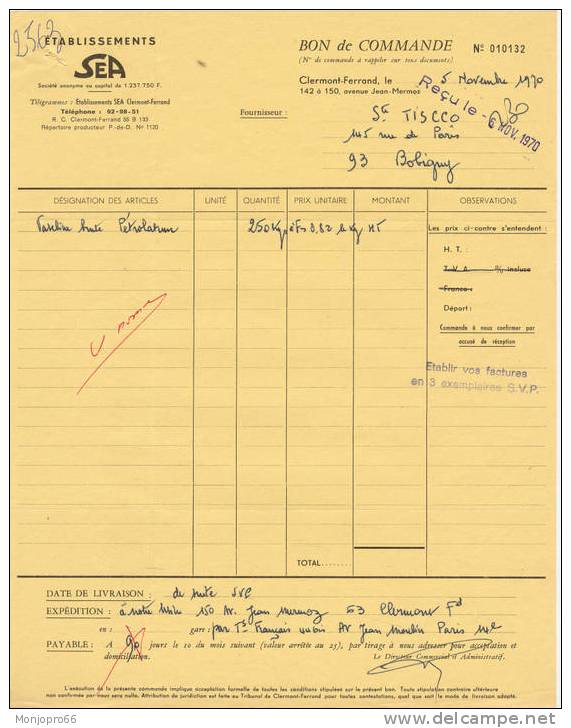 2563
ÉTABLISSEMENTS
SEA
Société anonyme au capital de 1.237.750 F.
Télégrammes : Établissements SEA Clermont-Ferrand
Téléphone : 92-98-51
R. C. Clermont-Ferrand 55 B 133
Répertoire producteur P.-de-D. Nº 1120
BON de COMMANDE Nº 010132
(Nº de commande à rappeler sur tous documents)
Clermont-Ferrand, le 5 Novembre 1970
142 à 150, avenue Jean-Mermoz
Reçu le - 6 NOV. 1970
Fournisseur : Sté TISCCO
145 rue de Paris
93 Bobigny
DÉSIGNATION DES ARTICLES UNITÉ QUANTITÉ PRIX UNITAIRE MONTANT OBSERVATIONS
Vaseline brute Pétrolatum 250 Kg à Fs 0,82 le Kg HT
Les prix ci-contre s'entendent :
H. T. :
T. V. A. % incluse
Franco :
Départ :
Commande à nous confirmer par
accusé de réception
Etablir vos factures
en 3 exemplaires S.V.P.
TOTAL........
DATE DE LIVRAISON : de suite SVP
EXPÉDITION : à notre Usine 150 Av. Jean Mermoz 63 Clermont Fd
en : gare : par Ts Français Av Jean Moulin Paris 14e
PAYABLE : A 90 jours le 10 du mois suivant (valeur arrêtée au 25), par tirage à nous adresser pour acceptation et
domiciliation.
Le Directeur Commercial et Administratif.
L'exécution de la présente commande implique acceptation formelle de toutes les conditions stipulées sur le présent bon. Toute stipulation contraire antérieure
non confirmée par nous sera nulle. Attribution de juridiction est faite au Tribunal de Clermont-Ferrand pour toutes contestations, quel que soit le mode de livraison adopté.
Monjopro66
www.delcampe.net